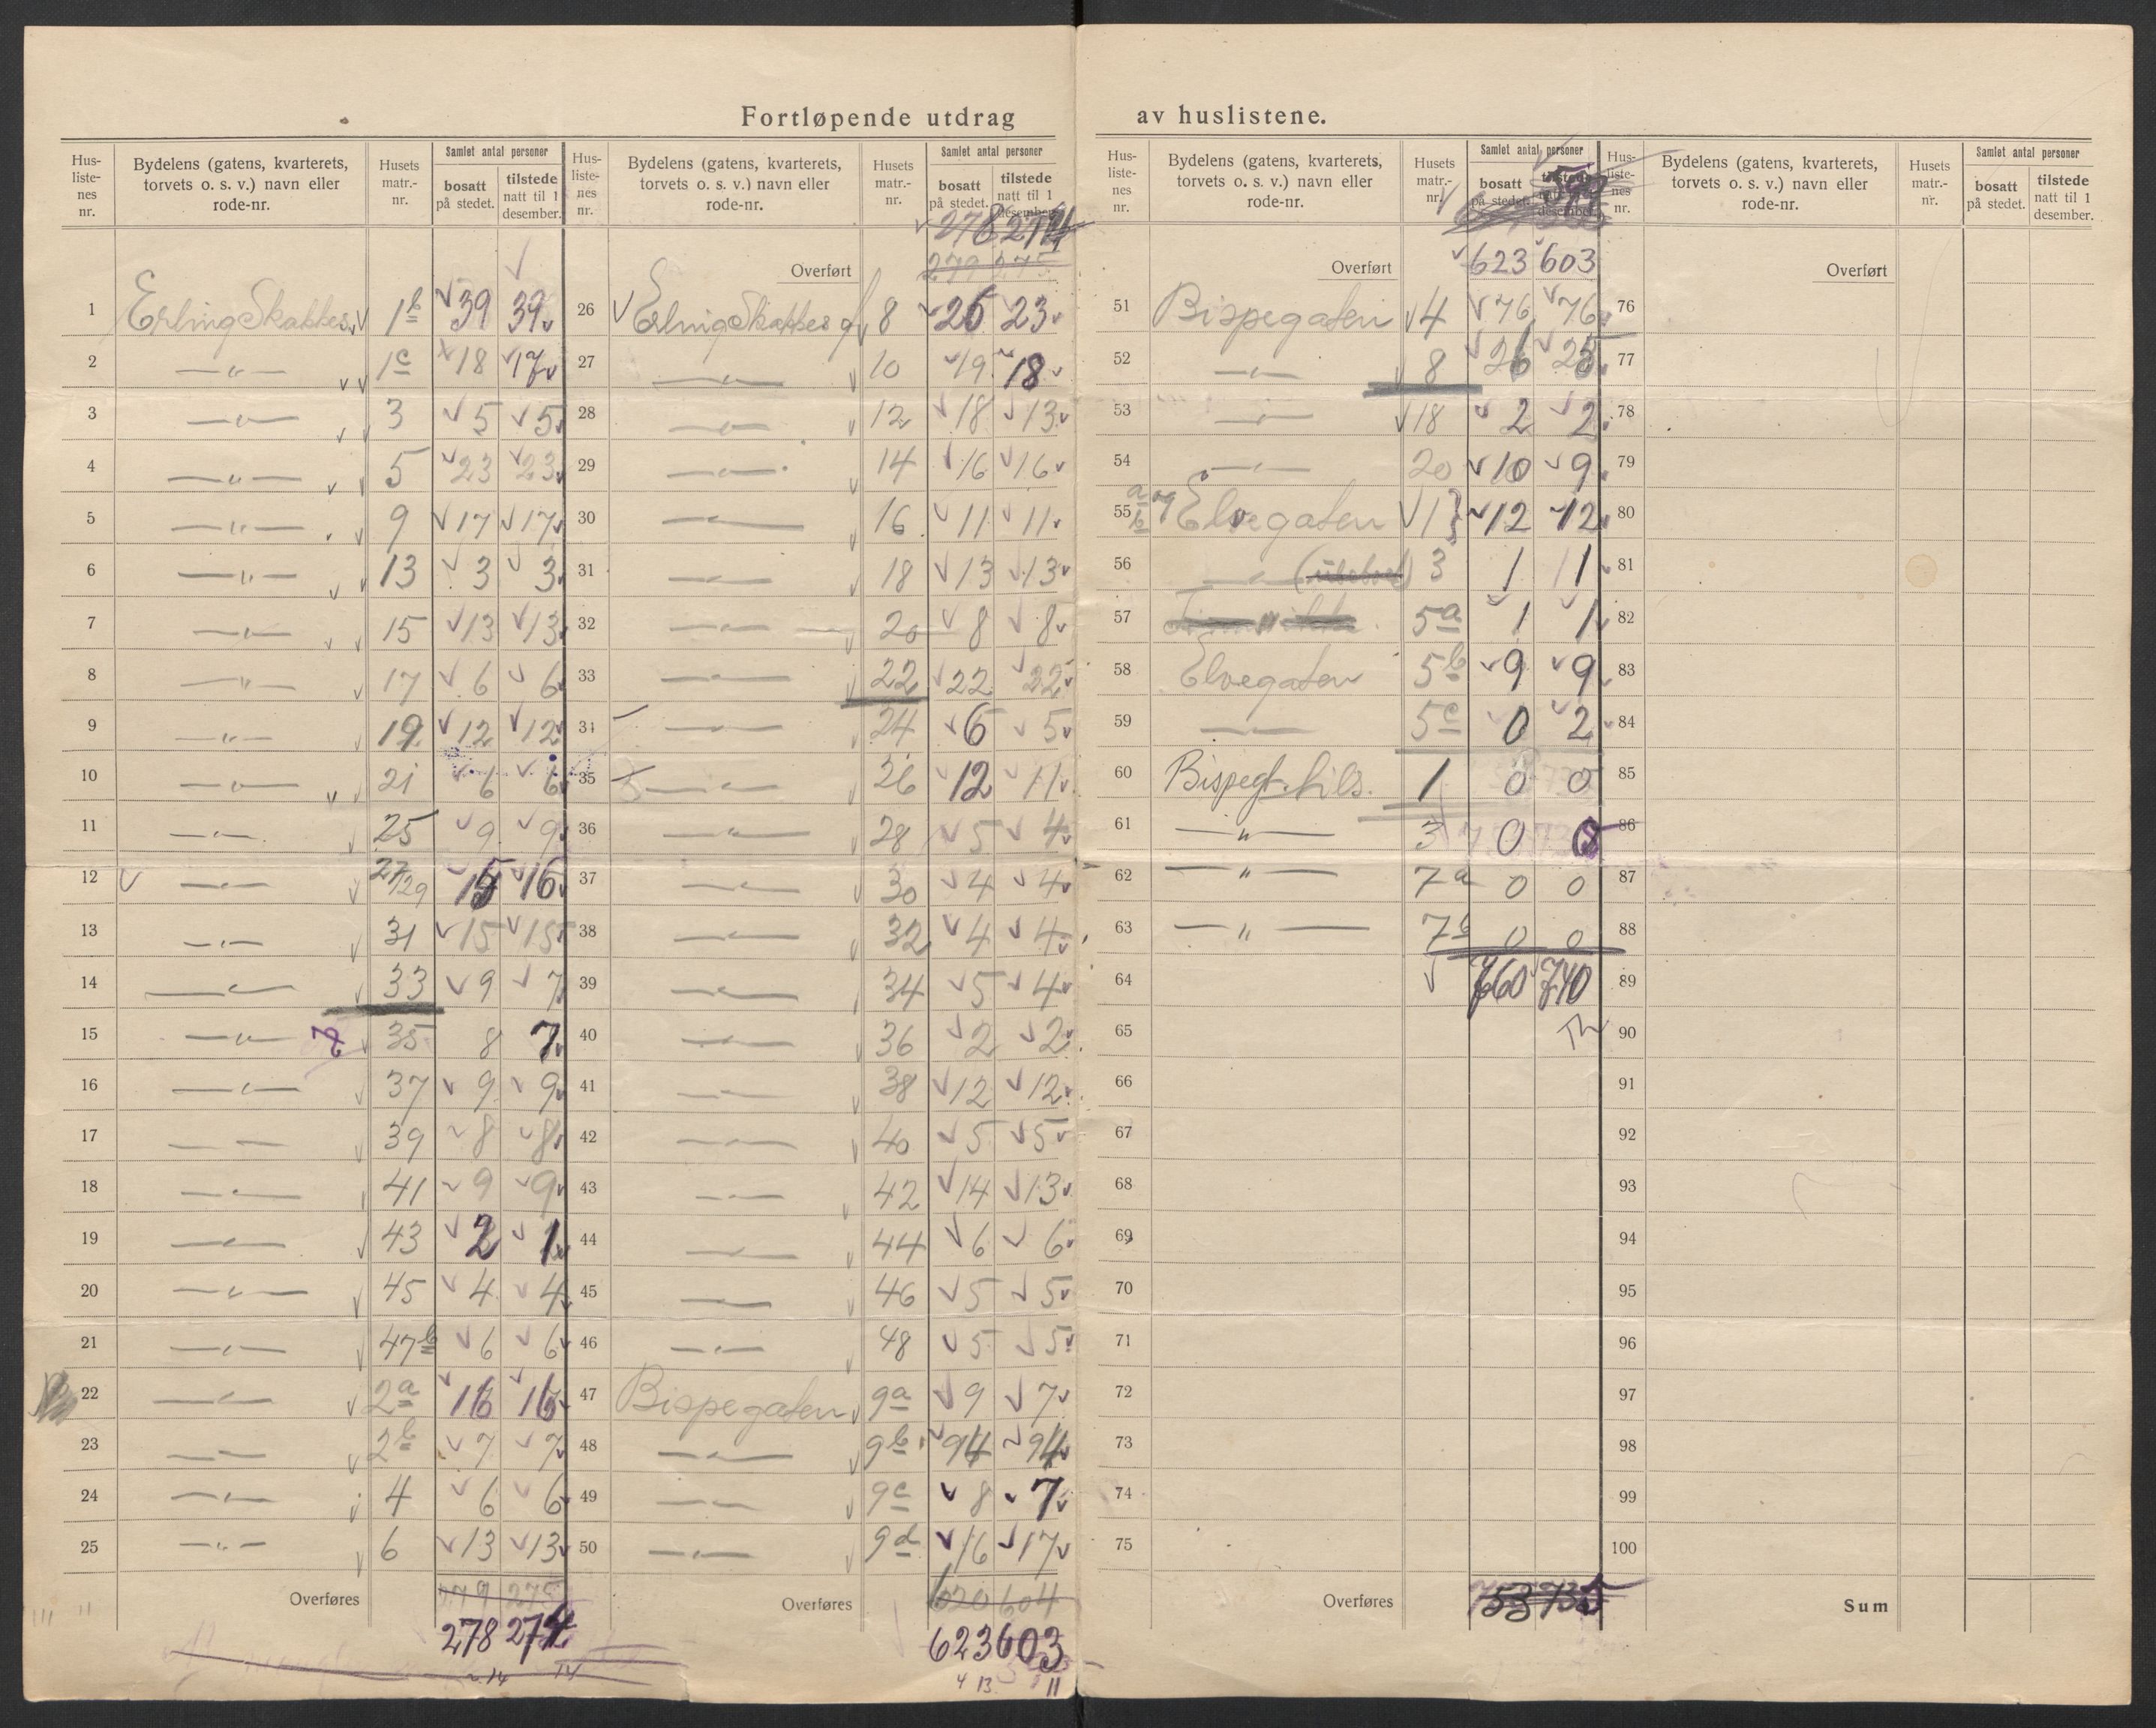 Fortløpende utdrag av huslistene.
Hus-listenes nr. | Bydelens (gatens, kvarterets, torvets o. s. v.) navn eller rode-nr. | Husets matr.-nr. | Samlet antal personer | bosatt på stedet. | tilstede natt til 1 desember.
1 Erling Skakkes 1b 39 39
2 —"— 1c 18 17
3 —"— 3 5 5
4 —"— 5 23 23
5 —"— 9 17 17
6 —"— 13 3 3
7 —"— 15 13 13
8 —"— 17 6 6
9 —"— 19 12 12
10 —"— 21 6 6
11 —"— 25 9 9
12 —"— 27/29 15 16
13 —"— 31 15 15
14 —"— 33 9 7
15 —"— 35 8 7
16 —"— 37 9 9
17 —"— 39 8 8
18 —"— 41 9 9
19 —"— 43 2 1
20 —"— 45 4 4
21 —"— 47b 6 6
22 —"— 2a 16 16
23 —"— 2b 7 7
24 —"— 4 6 6
25 —"— 6 13 13
Overføres 279 275
278 274
14 14
Hus-listenes nr. | Bydelens (gatens, kvarterets, torvets o. s. v.) navn eller rode-nr. | Husets matr.-nr. | Samlet antal personer | bosatt på stedet. | tilstede natt til 1 desember.
278 274
Overført 279 275
26 Erling Skakkes g 8 25 23
27 —"— 10 19 18
28 —"— 12 18 13
29 —"— 14 16 16
30 —"— 16 11 11
31 —"— 18 13 13
32 —"— 20 8 8
33 —"— 22 22 22
34 —"— 24 6 5
35 —"— 26 12 11
36 —"— 28 5 4
37 —"— 30 4 4
38 —"— 32 4 4
39 —"— 34 5 4
40 —"— 36 2 2
41 —"— 38 12 12
42 —"— 40 5 5
43 —"— 42 14 13
44 —"— 44 6 6
45 —"— 46 5 5
46 —"— 48 5 5
47 Bispegaten 9a 9 7
48 —"— 9b 94 94
49 —"— 9c 8 7
50 —"— 9d 16 17
Overføres 620 604
623 603
4 13 11
Hus-listenes nr. | Bydelens (gatens, kvarterets, torvets o. s. v.) navn eller rode-nr. | Husets matr.-nr. | Samlet antal personer | bosatt på stedet. | tilstede natt til 1 desember.
Overført 623 603
51 Bispegaten 4 76 76
52 —"— 8 26 25
53 —"— 18 2 2
54 —"— 20 10 9
55 a og b Elvegaten 1 } 12 12
56 —"— 3 1 1
57 5a 1 1
58 Elvegaten 5b 9 9
59 —"— 5c 0 2
60 Bispegt. hils. 1 0 0
61 —"— 3 0 0
62 —"— 7a 0 0
63 —"— 7b 0 0
64 760 740
65
66
67
68
69
70
71
72
73
74
75
Overføres 753 735
Hus-listenes nr. | Bydelens (gatens, kvarterets, torvets o. s. v.) navn eller rode-nr. | Husets matr.-nr. | Samlet antal personer | bosatt på stedet. | tilstede natt til 1 desember.
Overført
76
77
78
79
80
81
82
83
84
85
86
87
88
89
90
91
92
93
94
95
96
97
98
99
100
Sum